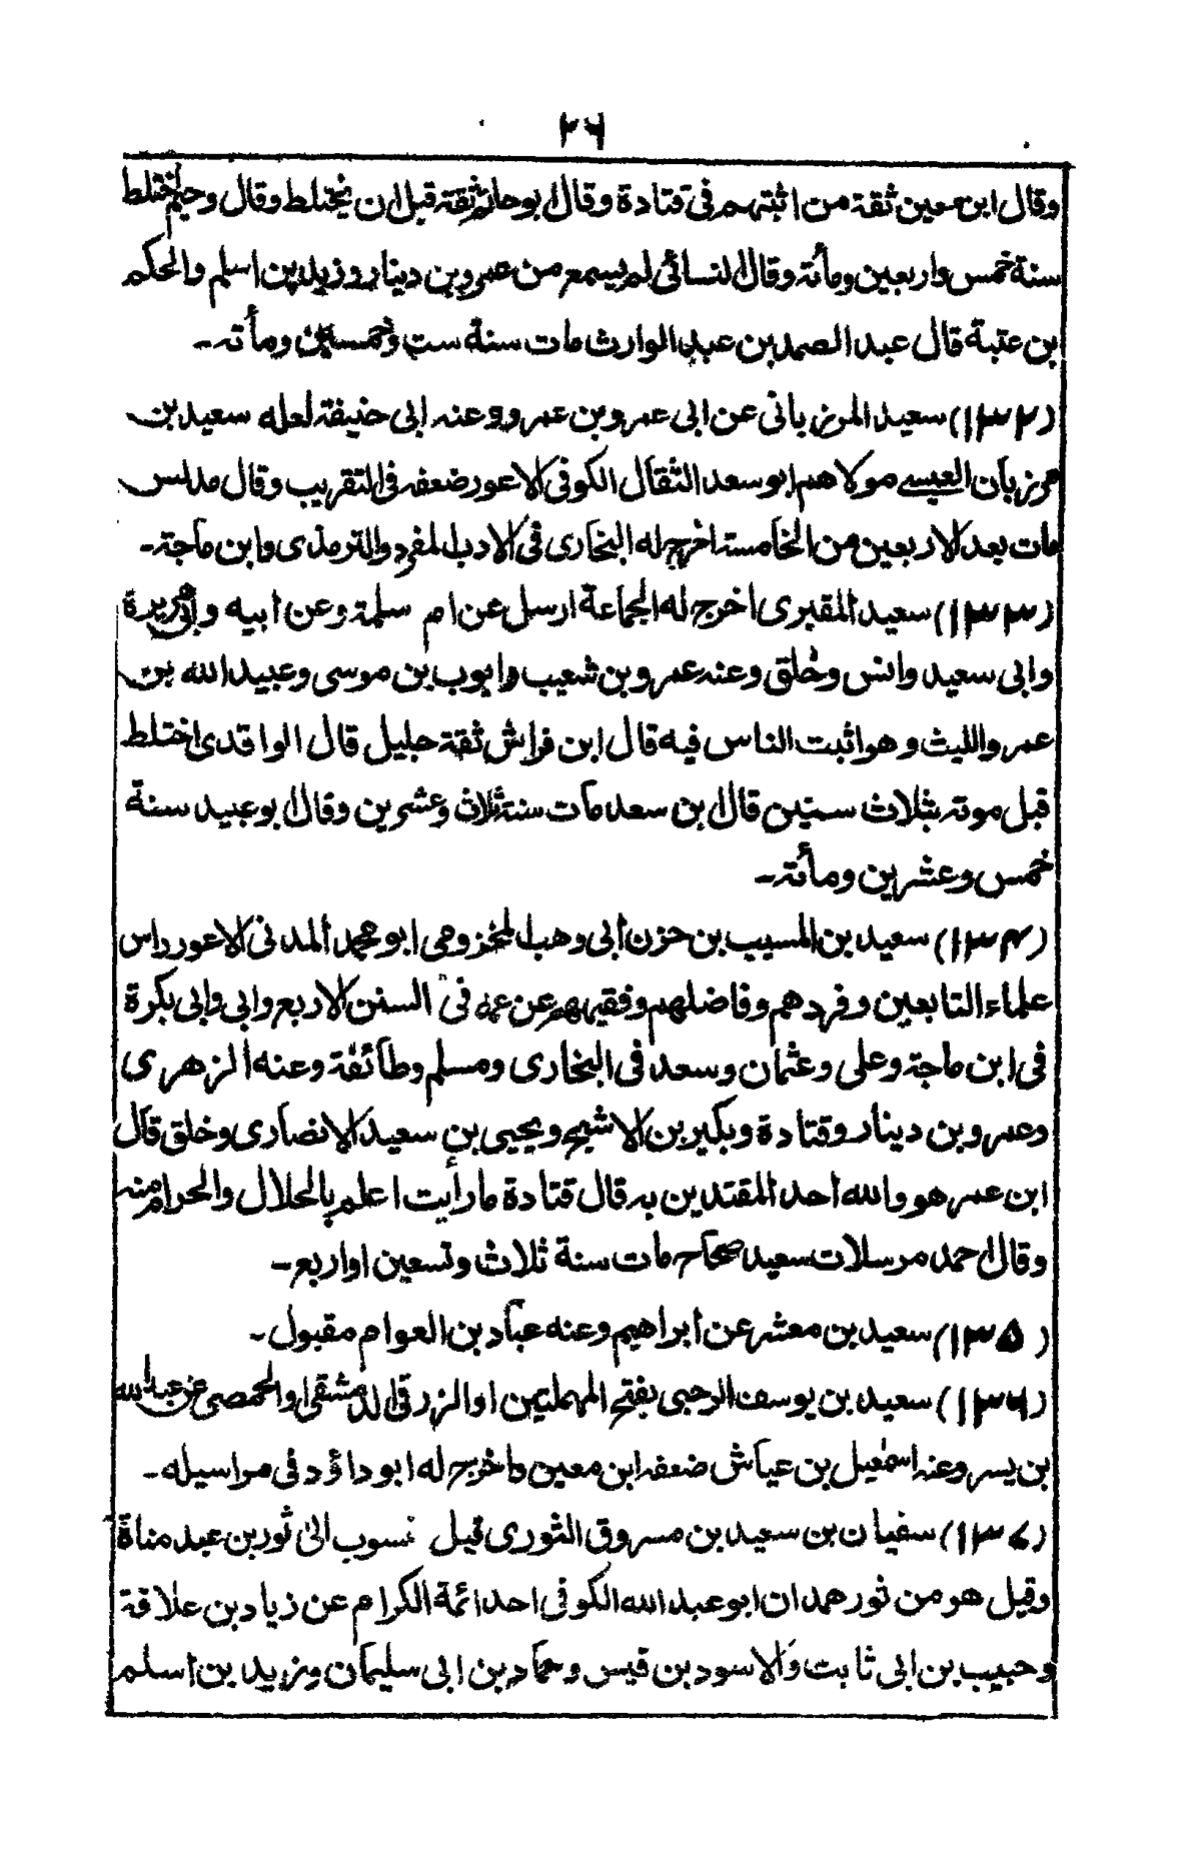 ۲۶
وقال ابن معين ثقة من اثبتهم فى قتادة وقال ابو حاتم ثقة قبل ان يختلط وقال وحيم اختلط
سنة خمس واربعين ومأتة وقال النسائى لم يسمع من عمرو بن دينار وزيد بن اسلم والحكم
بن عتبة قال عبد الصمد بن عبد الوارث مات سنة ست وخمسين ومأتة۔
(۱۳۲) سعيد المرزبانى عن ابى عمرو بن عمرو وعنه ابى حنيفة لعله سعيد بن
مرزبان العبسى مولاهم ابو سعد الثقال الكوفى الاعور ضعفه فى التقريب وقال مدلس
مات بعد الاربعين من الخامسة اخرج له البخارى فى الادب المفرد والترمذى وابن ماجة۔
(۱۳۳) سعيد المقبرى اخرج له الجماعة ارسل عن ام سلمة وعن ابيه وابى هريرة
وابى سعيد وانس وخلق وعنه عمرو بن شعيب وايوب بن موسى وعبيد الله بن
عمر والليث وهو اثبت الناس فيه قال ابن فراش ثقة جليل قال الواقدى اختلط
قبل موته بثلاث سنين قال ابن سعد مات سنة ثلاث وعشرين وقال ابو عبيد سنة
خمس وعشرين ومأتة۔
(۱۳۴) سعيد بن المسيب بن حزن ابى وهب المخزومى ابو محمد المدنى الاعور راس
علماء التابعين وفردهم وفاضلهم وفقيههم عن عمه فى السنن الاربع وابى وابى بكرة
فى ابن ماجة وعلى وعثمان وسعد فى البخارى ومسلم وطائفة وعنه الزهرى
وعمرو بن دينار وقتادة وبكير بن الاشج ويحيى بن سعيد الانصارى وخلق قال
ابن عمر هو والله احد المقتدين به قال قتادة ما رأيت اعلم بالحلال والحرام منه
وقال احمد مرسلات سعيد صحاح مات سنة ثلاث وتسعين او اربع۔
(۱۳۵) سعيد بن معشر عن ابراهيم وعنه عباد بن العوام مقبول۔
(۱۳۶) سعيد بن يوسف الرحبى بفتح المهملتين او الزرقى الدمشقى او الحمصى عن عبد الله
بن يسر وعنه اسمعيل بن عياش ضعفه ابن معين واخرج له ابو داؤد فى مراسيله۔
(۱۳۷) سفيان بن سعيد بن مسروق الثورى قيل نسوب الى ثور بن عبد مناة
وقيل هو من ثور همدان ابو عبد الله الكوفى احد ائمة الكرام عن زياد بن علاقة
وحبيب بن ابى ثابت والاسود بن قيس وحماد بن ابى سليمان وزيد بن اسلم